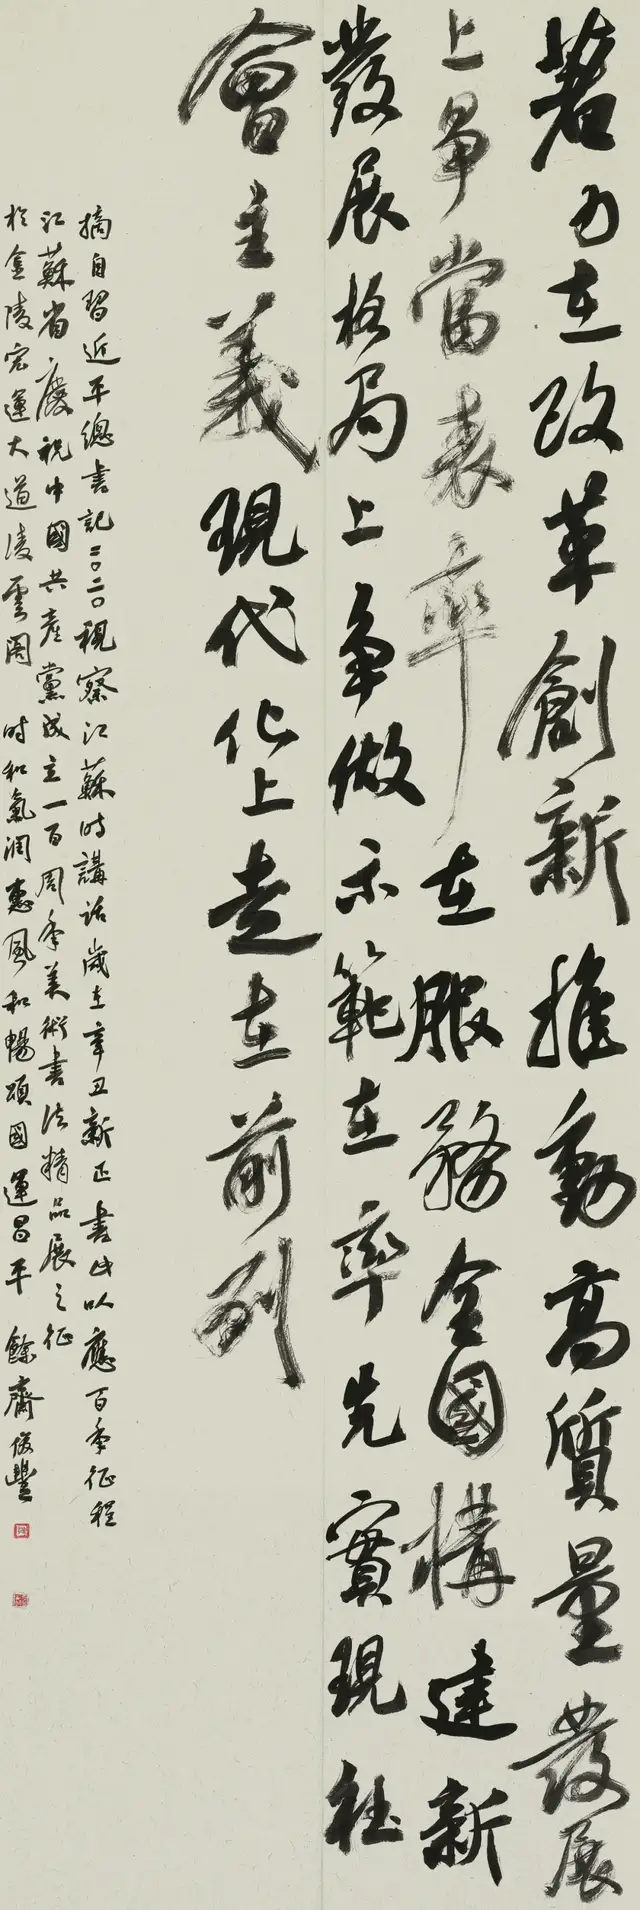 著力在改革創新推動高質量發展
上爭當表率在服務全國構建新
發展格局上爭做示範在率先實現社
會主義現代化上走在前列
摘自習近平總書記二〇二〇視察江蘇時講話歲在辛丑新正書此以應百年征程
江蘇省慶祝中國共產黨成立一百周年美術書法精品展之征
於金陵宏運大道凌雲閣時和氣潤惠風和暢頌國運昌平餘齋俊豐